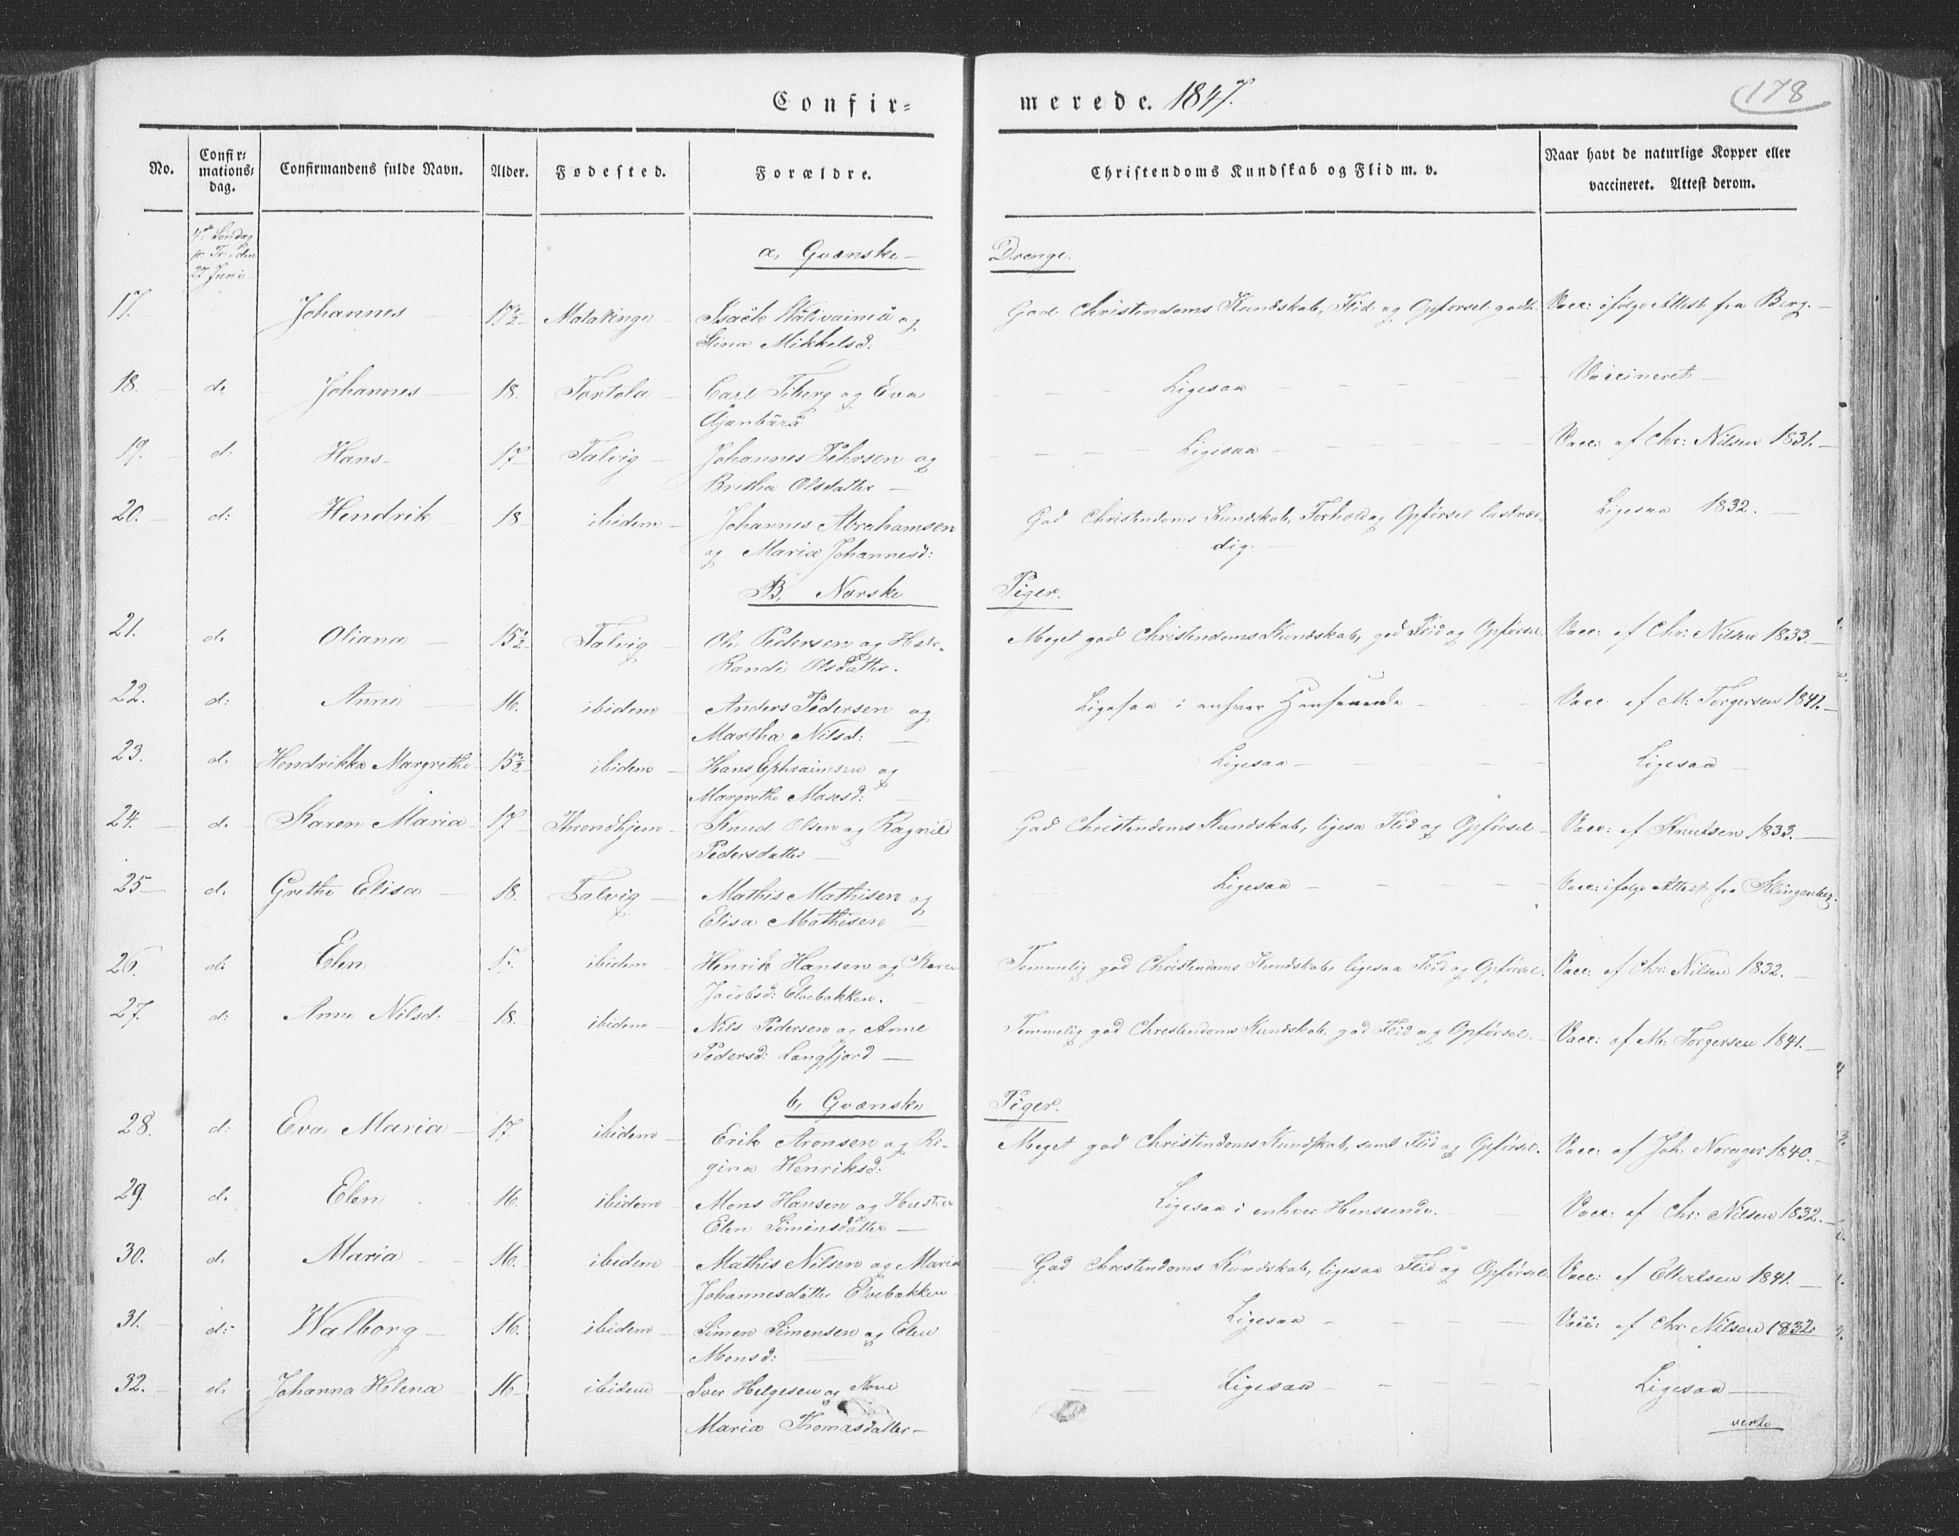 Confir=
merede. 1847.
178
No.
Confir=
mations=
dag.
Confirmandens fulde Navn.
Alder.
Fødested.
Forældre.
Christendoms Kundskab og Flid m. v.
Naar havt de naturlige Kopper eller
vaccineret. Attest derom.
4de Søndag
p. Tr: den
27 Juni
a, Qvænske
Drenge.
17. Johannes 17½ Matakinge Isach og God Christendoms Kundskab, Flid og Opførsel godt. Vacc: ifølge Attest fra Berg.
Stina Mikkelsd:
18. d. Johannes 18. Tortola Carl Fiberg og Eva Ligesaa Vaccineret
19. d: Hans 17 Talvig Johannes og Ligesaa Vacc: af Chr: Nilsen 1831.
Britha Olsdatter
20. d: Hendrik 18 ibidem Johannes Abrahamsen God Christendoms Kundskab, Forhold og Opførsel lastvær-
og Maria Johannesd: dig. Ligesaa 1832.
B, Norske
Piger.
21. d. Oliana 15½ Talvig Ole Pedersen og Meget god Christendoms Kundskab, god Flid og Opførsel. Vacc: af Chr: Nilsen 1833.
Randi Olsdatter.
22. d: Anne 16. ibidem Anders Pedersen og Ligesaa i enhver Henseende Vacc: af M: Torgersen 1841.
Martha Nilsd:
23. d. Hendrikke Margrethe 15½ ibidem Hans Ephraimsen og Ligesaa Ligesaa
Margrethe Mosesd:
24. d. Karen Maria 17 Throndhjem Knud Olsen og Ragnild God Christendoms Kundskab, ligesa Flid og Opførsel Vacc: af Knutsen 1833.
Pedersdatter
25 d. Grethe Elisa 18. Talvig Mathis Mathisen og Ligesaa Vacc: ifølge Attest fra Klingenberg.
Elisa Mathisen
26. d: Elen 17. ibidem Henrik Hansen og Karen Temmelig god Christendoms Kundskab, ligesaa Flid og Opførsel. Vacc: af Chr: Nilsen 1832.
Jacobsd: Elvebakken.
27. d: Anne Nilsd: 18. ibidem Nils Pedersen og Anne Temmelig god Christendoms Kundskab, god Flid og Opførsel. Vacc: af M: Torgersen 1841.
Pedersd: Langfjord
b, Qvænske
Piger.
28. d: Eva Maria 17. ibidem Erik Aronsen og Re- Meget god Christendoms Kundskab, samt Flid og Opførsel. Vacc: af Joh: Norager 1840.
gina Henriksd:
29. d. Elen 16. ibidem Mons Hansen og Hustru Ligesaa i enhver Henseende. Vacc: af Chr: Nilsen 1832.
Elen Simensdatter
30. d. Maria 16. ibidem Mathis Nilsen og Maria God Christendoms Kundskab, ligesaa Flid og Opførsel. Vacc: af 1841.
Johannesdatter Elvebakken
31. d: Walborg 16. ibidem Simen Simensen og Elen Ligesaa Vacc: af Chr: Nilsen 1832.
Monsd:
32. d. Johanna Helena 16 ibidem Iver Helgesen og Kone Ligesaa Ligesaa
Maria Thomasdatter
verte